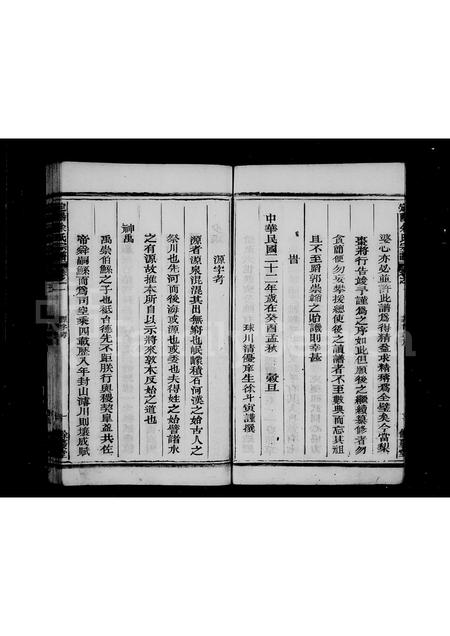 婆心亦必並許此譜為得精益求精稱為全璧矣今當梨
棗將行告竣予謹為之序如此但願後之繼續纂修者勿
貪簡便勿妄攀援總使後之誦譜者不至數典而忘其祖
且不至蹈郭崇韜之貽譏則幸甚
旹
中華民國二十二年歲在癸酉孟秋 穀旦
球川清優庠生徐斗寅謹撰
源字考
源者源泉混混其出無窮也岷嶓積石河漢之始古人之
祭川也先河而後海或源也或委也夫得姓之始譬諸水
之有源故推本所自以示將來敦本反始之道也
神禹
禹崇伯鯀之子也祗台德先不距朕行與稷契臯益共佐
帝舜嗣鯀而為司空乘四載歷八年封山濬川則壤成賦